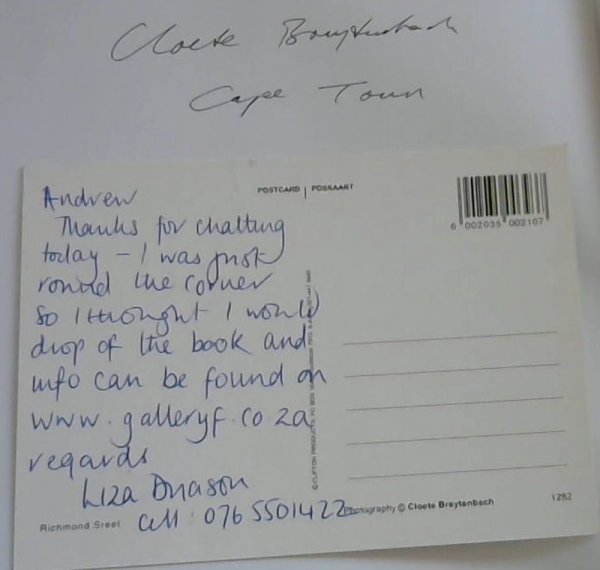 Cloete Breytenbach
Cape Town
POSTCARD | POSKAART
6 002035 002107
Andrew
Thanks for chatting
today - I was just
round the corner
so I thought I would
drop of the book and
info can be found on
www.galleryf.co.za
regards
Liza
Cell: 076 5501422
Richmond Sreet
Photography © Cloete Breytenbach
1282
© CLIFTON PRODUCTS, PO BOX